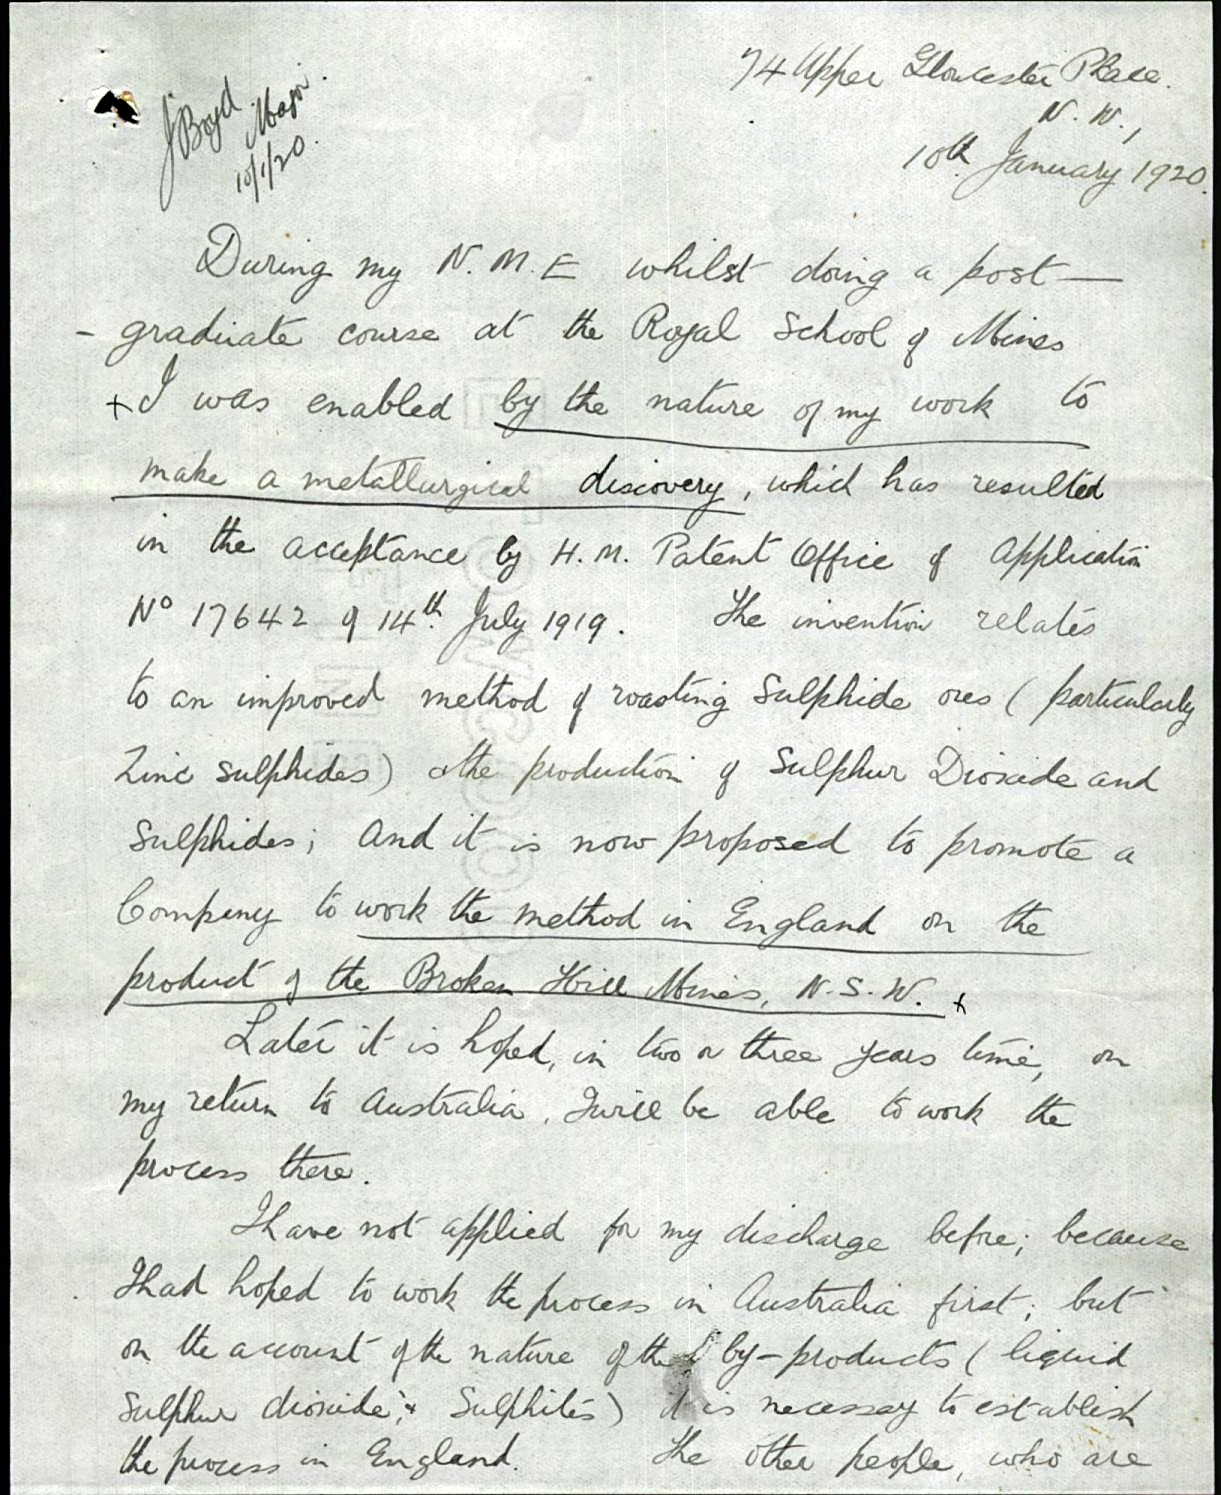 74 Upper Gloucester Place.
N. W.,
10th January 1920.
J Boyd
Major
10/1/20.
During my N. M. E whilst doing a post—
- graduate course at the Royal School of Mines
+ I was enabled by the nature of my work to
make a metallurgical discovery, which has resulted
in the acceptance by H. M. Patent Office of Application
No 17642 of 14th July 1919. The invention relates
to an improved method of roasting Sulphide ores (particularly
Zinc sulphides) & the production of Sulphur Dioxide and
Sulphides; and it is now proposed to promote a
Company to work the method in England on the
product of the Broken Hill Mines, N.S.W. +
Later it is hoped, in two or three years time, on
my return to Australia, I will be able to work the
process there.
I have not applied for my discharge before; because
I had hoped to work the process in Australia first; but
on the account of the nature of the by-products (liquid
Sulphur dioxide, & Sulphites) it is necessary to establish
the process in England. The other people, who are